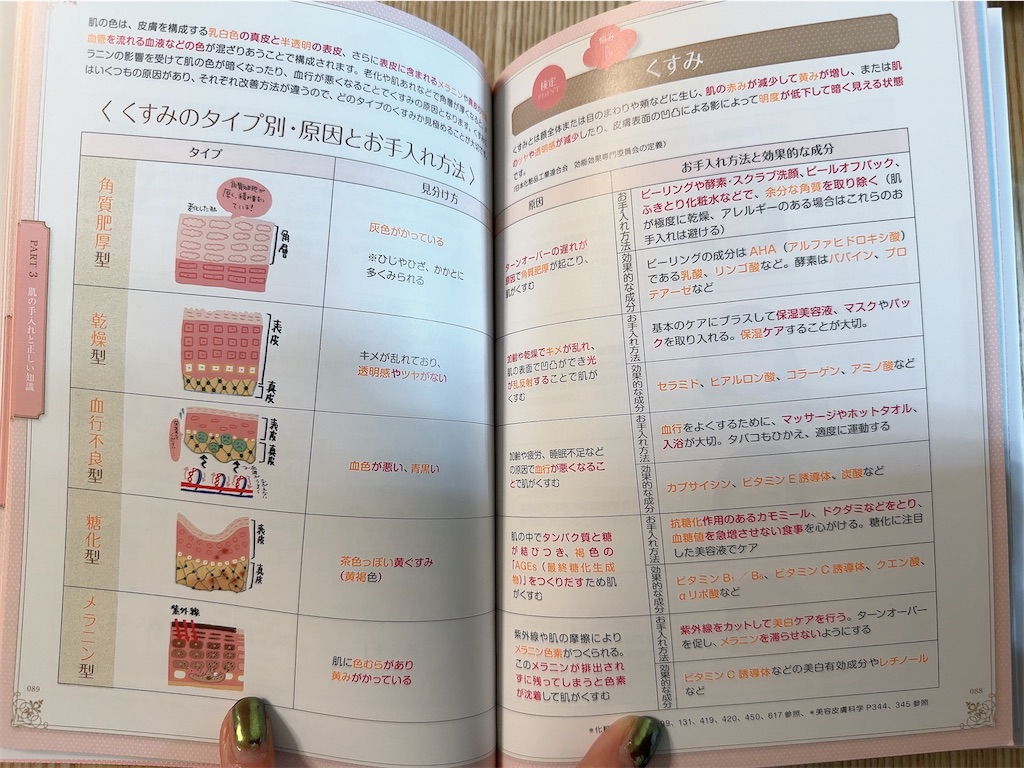 肌の色は、皮膚を構成する乳白色の真皮と半透明の表皮、さらに表皮に含まれるメラニンや
血管を流れる血液などの色が混ざりあうことで構成されます。老化や肌あれなどで角層が厚くなる
ラニンの影響を受けて肌の色が暗くなったり、血行が悪くなることでくすみの原因となります。
はいくつもの原因があり、それぞれ改善方法が違うので、どのタイプのくすみか見極めることが大切です
〈くすみのタイプ別・原因とお手入れ方法〉
タイプ
見分け方
角質肥厚型
老化した肌
角層
灰色がかっている
※ひじやひざ、かかとに
多くみられる
乾燥型
表皮
真皮
キメが乱れており、
透明感やツヤがない
血行不良型
表皮
真皮
血色が悪い、青黒い
糖化型
表皮
真皮
茶色っぽい黄くすみ
(黄褐色)
メラニン型
紫外線
肌に色むらがあり
黄みがかっている
PART 3 肌の手入れと正しい知識
089
悩み
検定
POINT
くすみ
くすみとは顔全体または目のまわりや頰などに生じ、肌の赤みが減少して黄みが増し、または肌
のツヤや透明感が減少したり、皮膚表面の凹凸による影によって明度が低下して暗く見える状態
です。
(日本化粧品工業連合会 効能効果専門委員会の定義)
原因
お手入れ方法と効果的な成分
ターンオーバーの遅れが
原因で角質肥厚が起こり、
肌がくすむ
お手入れ方法
ピーリングや酵素・スクラブ洗顔、ピールオフパック、
ふきとり化粧水などで、余分な角質を取り除く(肌
が極度に乾燥、アレルギーのある場合はこれらのお
手入れは避ける)
効果的な成分
ピーリングの成分はAHA(アルファヒドロキシ酸)
である乳酸、リンゴ酸など。酵素はパパイン、プロ
テアーゼなど
加齢や乾燥でキメが乱れ、
肌の表面で凹凸ができ光
が乱反射することで肌が
くすむ
お手入れ方法
基本のケアにプラスして保湿美容液、マスクやパッ
クを取り入れる。保湿ケアすることが大切。
効果的な成分
セラミド、ヒアルロン酸、コラーゲン、アミノ酸など
加齢や疲労、睡眠不足など
の原因で血行が悪くなるこ
とで肌がくすむ
お手入れ方法
血行をよくするために、マッサージやホットタオル、
入浴が大切。タバコもひかえ、適度に運動する
効果的な成分
カプサイシン、ビタミンE誘導体、炭酸など
肌の中でタンパク質と糖
が結びつき、褐色の
「AGEs(最終糖化生成
物)」をつくりだすため肌
がくすむ
お手入れ方法
抗糖化作用のあるカモミール、ドクダミなどをとり、
血糖値を急増させない食事を心がける。糖化に注目
した美容液でケア
効果的な成分
ビタミンB₁／B₆、ビタミンC誘導体、クエン酸、
αリポ酸など
紫外線や肌の摩擦により
メラニン色素がつくられる。
このメラニンが排出され
ずに残ってしまうと色素
が沈着して肌がくすむ
お手入れ方法
紫外線をカットして美白ケアを行う。ターンオーバー
を促し、メラニンを滞らせないようにする
効果的な成分
ビタミンC誘導体などの美白有効成分やレチノール
など
*化粧 99、131、419、420、450、617参照、*美容皮膚科学 P344、345参照
088